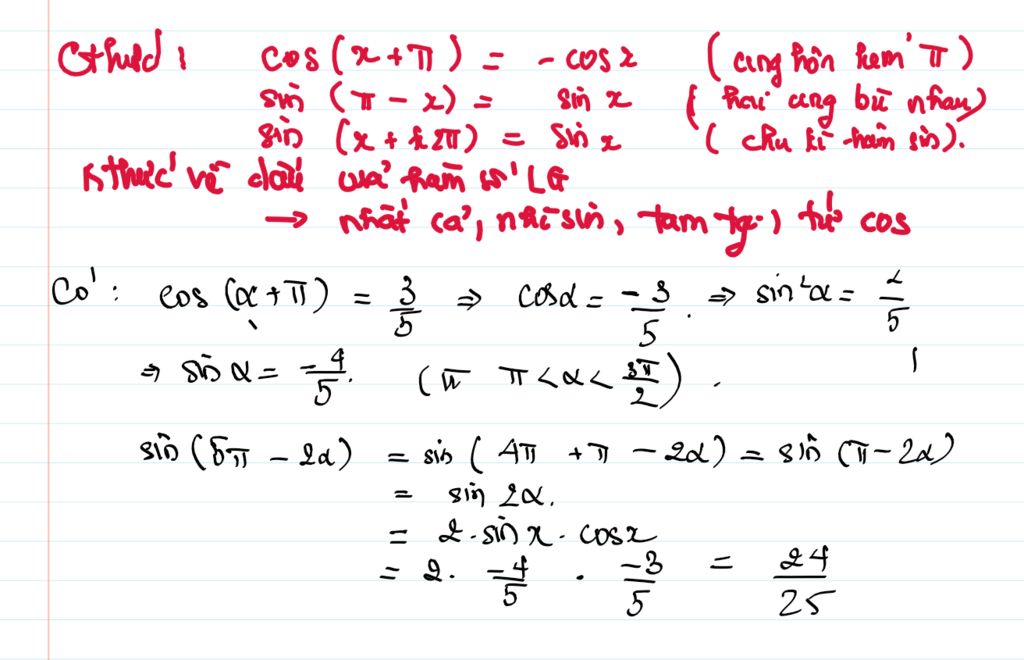 Cthức : cos (x + π) = - cos x (cung hơn kém π)
sin (π - x) = sin x (hai cung bù nhau)
sin (x + k2π) = sin x (chu kì hàm sin).
Kthức về dấu của hàm số LG
→ nhất cả, nhì sin, tam tg, tứ cos
Có : cos (α + π) = 3/5 ⇒ cos α = -3/5 . ⇒ sin²α = 2/5
⇒ sin α = -4/5. ( π < α < 3π/2 ) .
sin (5π - 2α) = sin ( 4π + π - 2α) = sin (π - 2α)
= sin 2α.
= 2 . sin x . cos x
= 2 . -4/5 . -3/5 = 24/25